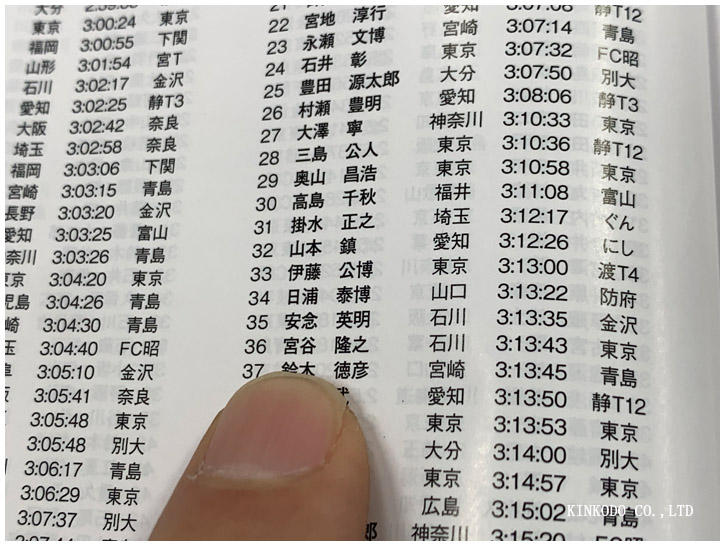 大分 2:59:08
東京 3:00:24 東京
福岡 3:00:55 下関
山形 3:01:54 宮T
石川 3:02:17 金沢
愛知 3:02:25 静T3
大阪 3:02:42 奈良
埼玉 3:02:58 奈良
福岡 3:03:06 下関
宮崎 3:03:15 青島
長野 3:03:20 金沢
愛知 3:03:25 富山
奈川 3:03:26 青島
東京 3:04:20 東京
児島 3:04:26 青島
崎 3:04:30 青島
玉 3:04:40 FC昭
3:05:10 金沢
阪 3:05:41 奈良
3:05:48 東京
3:05:48 別大
3:06:17 青島
3:06:29 東京
3:07:37 別大
21
22 宮地 淳行 愛知 3:07:08 静T12
23 永瀬 文博 宮崎 3:07:14 青島
24 石井 彰 東京 3:07:32 FC昭
25 豊田 源太郎 大分 3:07:50 別大
26 村瀬 豊明 愛知 3:08:06 静T3
27 大澤 寧 神奈川 3:10:33 東京
28 三島 公人 東京 3:10:36 静T12
29 奥山 昌浩 東京 3:10:58 東京
30 高島 千秋 福井 3:11:08 富山
31 掛水 正之 埼玉 3:12:17 ぐん
32 山本 鎮 愛知 3:12:26 にし
33 伊藤 公博 東京 3:13:00 渡T4
34 日浦 泰博 山口 3:13:22 防府
35 安念 英明 石川 3:13:35 金沢
36 宮谷 隆之 石川 3:13:43 東京
37 鈴木 徳彦 宮崎 3:13:45 青島
愛知 3:13:50 静T12
東京 3:13:53 東京
大分 3:14:00 別大
東京 3:14:57 東京
広島 3:15:02 青島
郎 神奈川 3:15:20 FC昭
KINKODO CO.,LTD